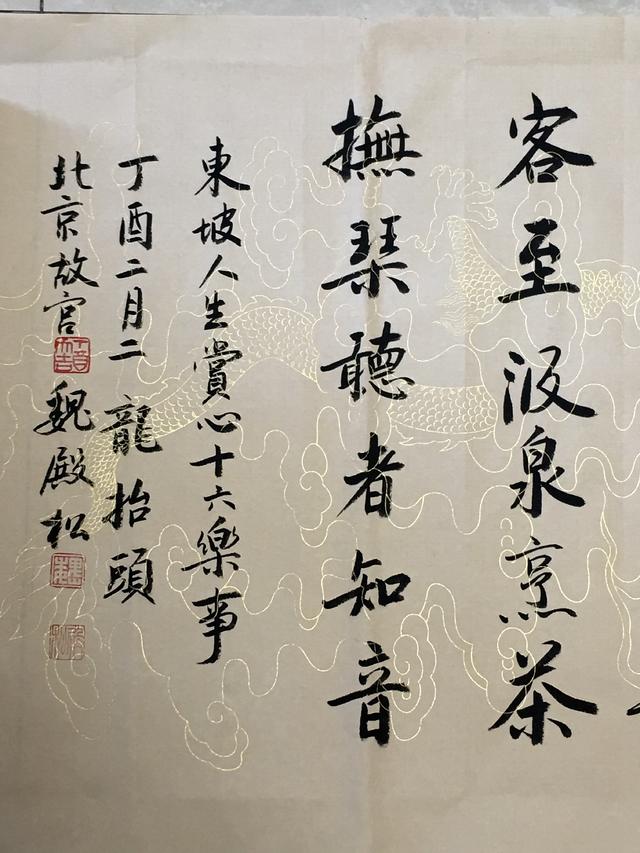 客至汲泉烹茶
撫琹聽者知音
東坡人生賞心十六樂事
丁酉二月二 龍抬頭
北京故宮 魏殿松